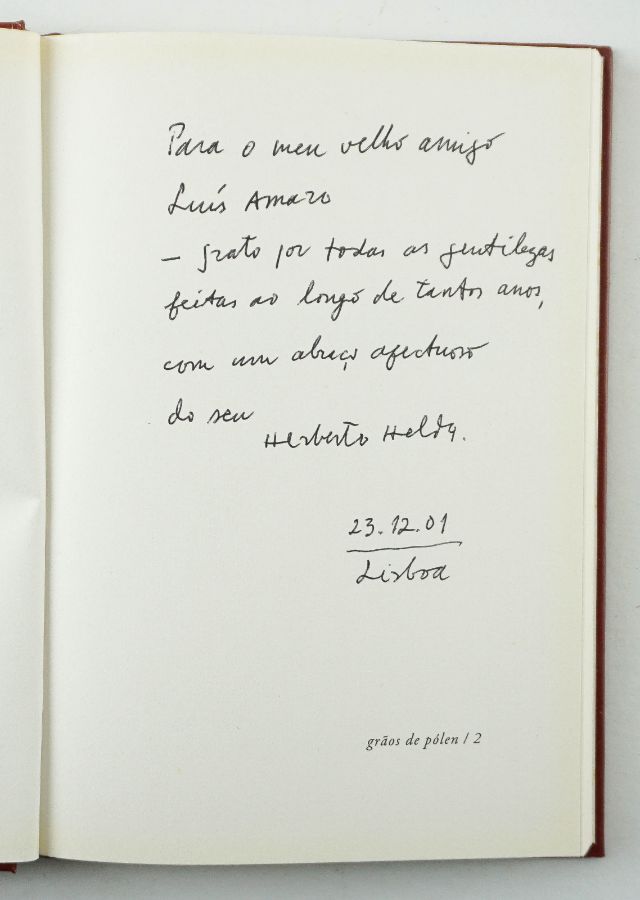 Para o meu velho amigo
Luís Amaro
— grato por todas as gentilezas
feitas ao longo de tantos anos,
com um abraço afectuoso
do seu
Herberto Helder.
23.12.01
Lisboa
grãos de pólen / 2